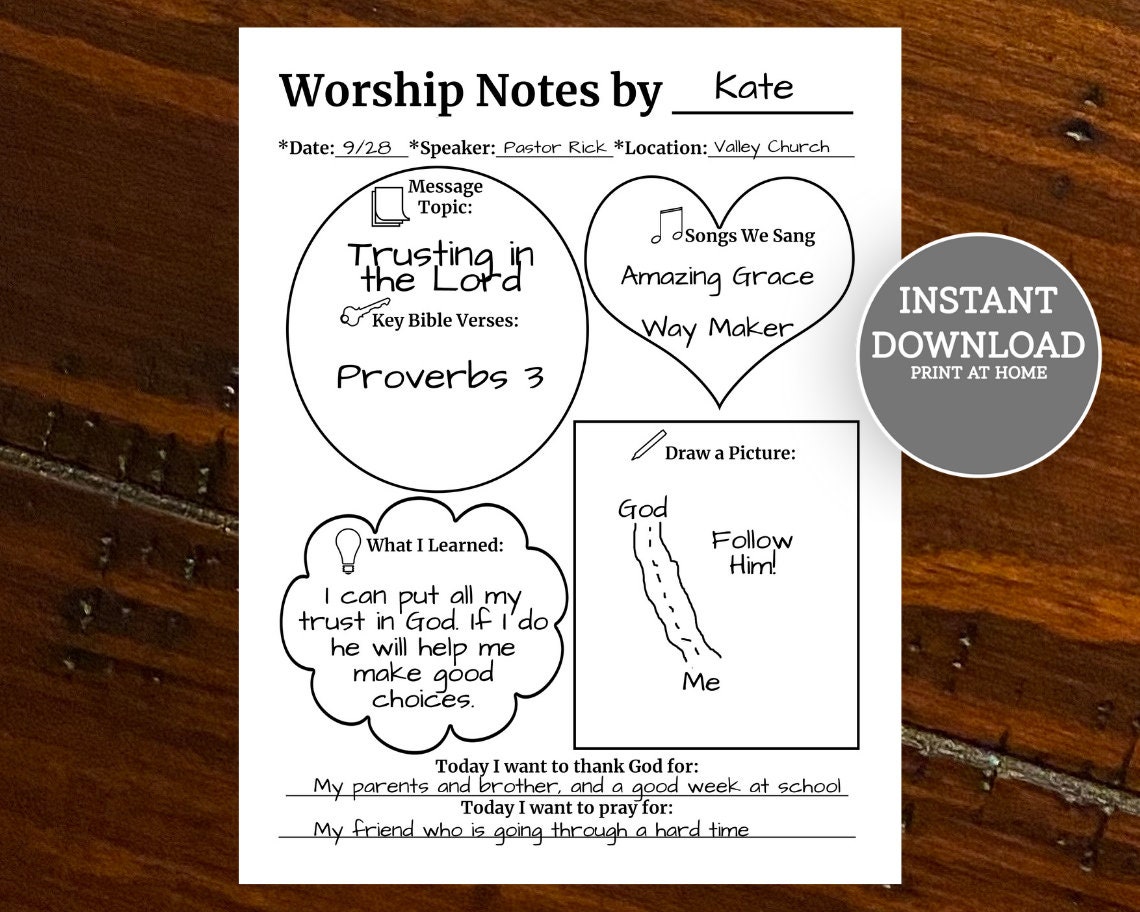 Worship Notes by Kate
*Date: 9/28 *Speaker: Pastor Rick *Location: Valley Church
Message
Topic:
Trusting in
the Lord
Key Bible Verses:
Proverbs 3
Songs We Sang
Amazing Grace
Way Maker
INSTANT
DOWNLOAD
PRINT AT HOME
What I Learned:
I can put all my
trust in God. If I do
he will help me
make good
choices.
Draw a Picture:
God
Follow
Him!
Me
Today I want to thank God for:
My parents and brother, and a good week at school
Today I want to pray for:
My friend who is going through a hard time